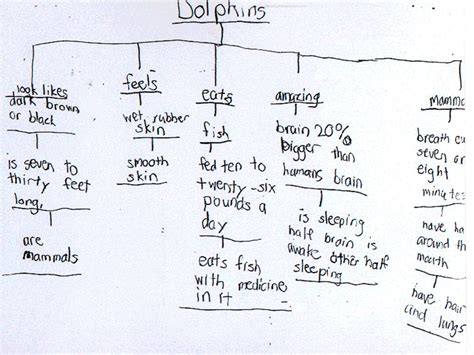 Dolphins
look likes
dark brown
or black
is seven to
thirty feet
long,
are
mammals
feels
wet, rubber
skin
smooth
skin
eats
fish
fed ten to
twenty-six
pounds a
day
eats fish
with medicine
in it
amazing
brain 20%
bigger than
humans brain
is sleeping
half brain is
awake other half
sleeping
mamma
breath
seven or
eight
minutes
have ha
around th
mouth
have hair
and lungs